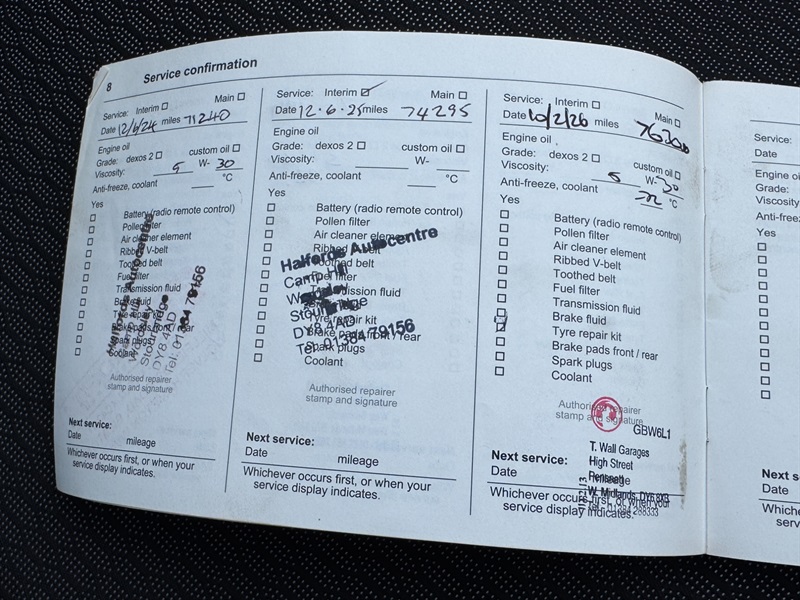 8 Service confirmation
Service: Interim Main
Date 12/6/24 miles 71240
Engine oil
Grade: dexos 2 custom oil
Viscosity: 5 W- 30
Anti-freeze, coolant °C
Yes
Battery (radio remote control)
Pollen filter
Air cleaner element
Ribbed V-belt
Toothed belt
Fuel filter
Transmission fluid
Brake fluid
Tyre repair kit
Brake pads front / rear
Spark plugs
Coolant
Halfords Autocentre
Stourbridge
DY8 4AD
Tel: 01384 79156
Authorised repairer
stamp and signature
Next service:
Date mileage
Whichever occurs first, or when your
service display indicates.
Service: Interim Main
Date 12.6.25 miles 74295
Engine oil
Grade: dexos 2 custom oil
Viscosity: W-
Anti-freeze, coolant °C
Yes
Battery (radio remote control)
Pollen filter
Air cleaner element
Ribbed V-belt
Toothed belt
Fuel filter
Transmission fluid
Brake fluid
Tyre repair kit
Brake pads front / rear
Spark plugs
Coolant
Halfords Autocentre
Camp Hill
Stourbridge
DY8 4AD
Tel: 01384 79156
Authorised repairer
stamp and signature
Next service:
Date mileage
Whichever occurs first, or when your
service display indicates.
Service: Interim Main
Date 10/2/26 miles
Engine oil
Grade: dexos 2 custom oil
Viscosity: 5 W- 30
Anti-freeze, coolant °C
Yes
Battery (radio remote control)
Pollen filter
Air cleaner element
Ribbed V-belt
Toothed belt
Fuel filter
Transmission fluid
Brake fluid
Tyre repair kit
Brake pads front / rear
Spark plugs
Coolant
Authorised repairer
stamp and signature
GBW6L1
T. Wall Garages
High Street
Pensnett
W. Midlands, DY6 8XB
Tel:- 01384 288333
Next service:
Date mileage
Whichever occurs first, or when your
service display indicates.
Service:
Date
Engine oil
Grade:
Viscosity
Anti-freeze
Yes
Next s
Date
Whichever
serv